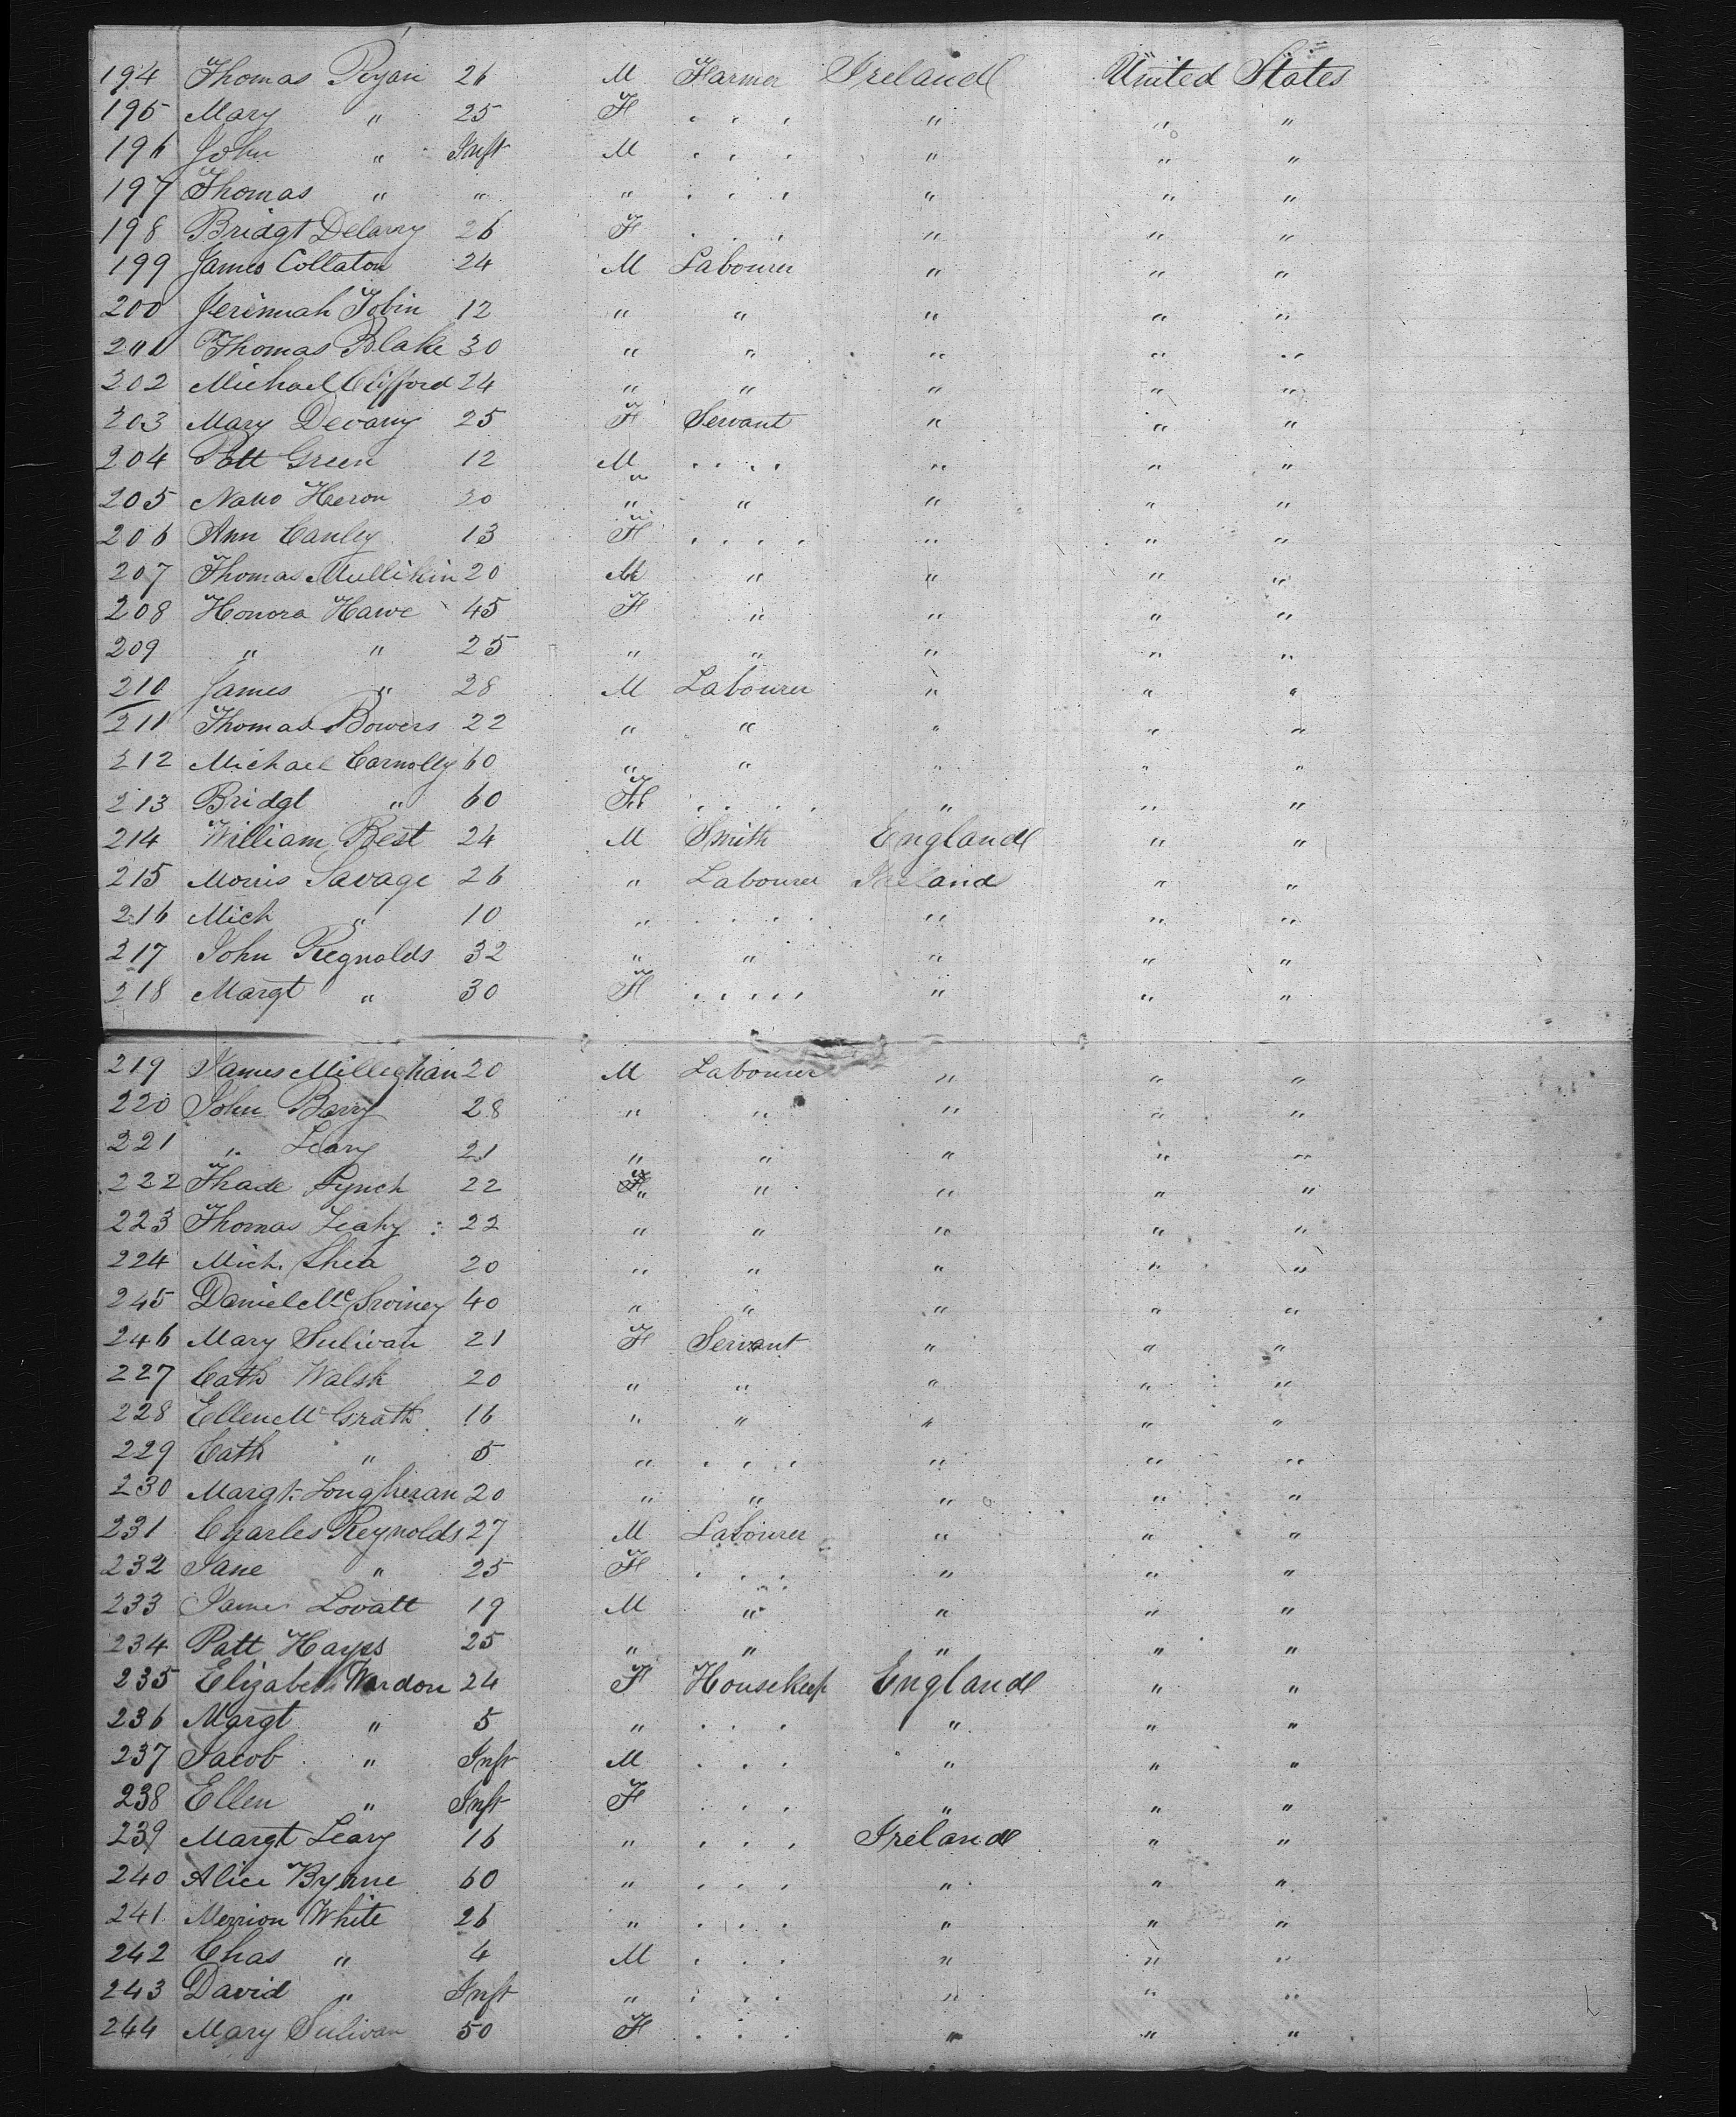 194 Thomas Ryan 26 M Farmer Ireland United States
195 Mary " 25 F . . . " " "
196 John " Inft M . . . " " "
197 Thomas " " " . . . " " "
198 Bridgt Delany 26 F . . . " " "
199 James Collaton 24 M Labourer " " "
200 Jerimuah Tobin 12 " " " " "
201 Thomas Blake 30 " " " " "
202 Michael Clifford 24 " " " " "
203 Mary Devany 25 F Servant " " "
204 Patt Green 12 M . . . . " " "
205 Heron 20 " " " " "
206 Ann Canley 13 F . . . . " " "
207 Thomas Mullikin 20 M " " " "
208 Honora Hawe 45 F " " " "
209 " " 25 " " " " "
210 James " 28 M Labourer " " "
211 Thomas Bowers 22 " " " " "
212 Michael Connolly 60 " " " " "
213 Bridgt " 60 F . . . . " " "
214 William Best 24 M Smith England " "
215 Morris Savage 26 " Labourer Ireland " "
216 Mich " 10 " . . . . " " "
217 John Reynolds 32 " " " " "
218 Margt " 30 F . . . . . " " "
219 James Milleghan 20 M Labourer " " "
220 John Barry 28 " " " " "
221 " Leary 21 " " " " "
222 Thade Lynch 22 " " " " "
223 Thomas Leahy 22 " " " " "
224 Mich. Shea 20 " " " " "
245 Daniel Mc Swiney 40 " " " " "
246 Mary Sulivan 21 F Servant " " "
227 Cath Walsh 20 " " " " "
228 Ellen Mc Grath 16 " " " " "
229 Cath " 5 " . . . . " " "
230 Margt. Lougheran 20 " " " " "
231 Charles Reynolds 27 M Labourer " " "
232 Jane " 25 F . . . " " "
233 James Lovatt 19 M " " " "
234 Patt Hayes 25 " " " " "
235 Elizabeth Wardon 24 F Housekeep England " "
236 Margt " 5 " . . . " " "
237 Jacob " Inft M . . . " " "
238 Ellen " Inft F . . . " " "
239 Margt Leary 16 " . . . Ireland " "
240 Alice Byrne 60 " . . . " " "
241 Merrion White 26 " . . . " " "
242 Chas " 4 M . . . " " "
243 David " Inft " . . . " " "
244 Mary Sulivan 50 F . . . " " "